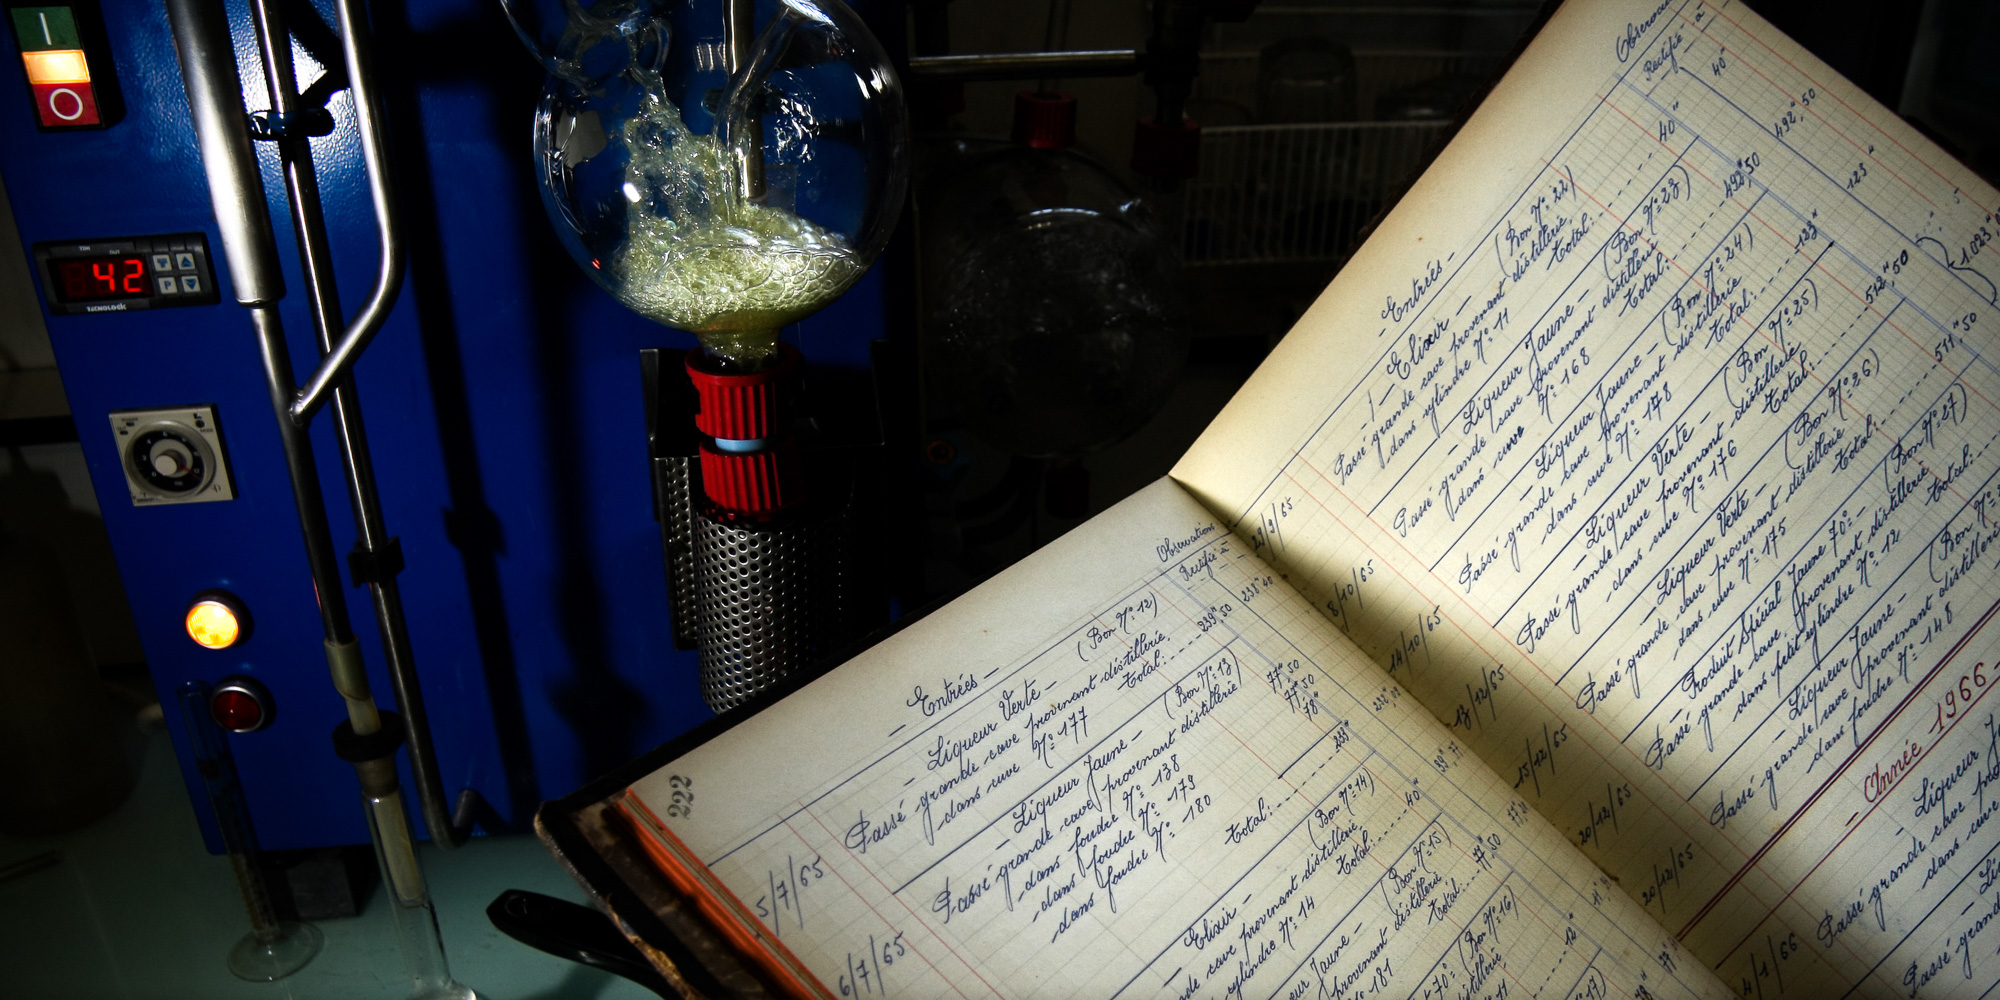 I
O
42
TECNOLOGIC
P
222
Observations
Rectifié à
- Entrées -
5/7/65
- Liqueur Verte - (Bon N°: 12)
Passé grande cave provenant distillerie
dans cuve N°: 177 Total: 239",50
6/7/65
- Liqueur Jaune - (Bon N°: 13)
Passé grande cave provenant distillerie
dans foudre N°: 138 77",50
dans foudre N°: 179 77",50
dans foudre N°: 180 78"
Total: 233"
Elixir - (Bon N°: 14)
cave provenant distillerie
cylindre N°: 14 Total: 40"
Jaune - (Bon N°: 15)
provenant distillerie
N°: 181 Total: 77",50
70°- (Bon N°: 16)
distillerie
N°: 11 12"
Observations
Rectifié à
- Entrées -
28/9/65
1 - Elixir - (Bon N°: 22)
Passé grande cave provenant distillerie
dans cylindre N°: 11 Total: 40" 40"
8/10/65
- Liqueur Jaune - (Bon N°: 23)
Passé grande cave provenant distillerie
dans cuve N°: 168 Total: 492",50 492",50
14/10/65
- Liqueur Jaune - (Bon N°: 24)
Passé grande cave provenant distillerie
dans cuve N°: 178 Total: 123" 123"
13/12/65
- Liqueur Verte - (Bon N°: 25)
Passé grande cave provenant distillerie
dans cuve N°: 176 Total: 512",50
15/12/65
- Liqueur Verte - (Bon N°: 26)
Passé grande cave provenant distillerie
dans cuve N°: 175 Total: 511",50
20/12/65
- Produit Spécial Jaune 70°- (Bon N°: 27)
Passé grande cave provenant distillerie
dans petit cylindre N°: 12 Total:
20/12/65
- Liqueur Jaune - (Bon N°:
Passé grande cave provenant distillerie
dans foudre N°: 148
- Année 1966 -
4/1/66
- Liqueur
Passé grande cave
dans cuve
Passé grande